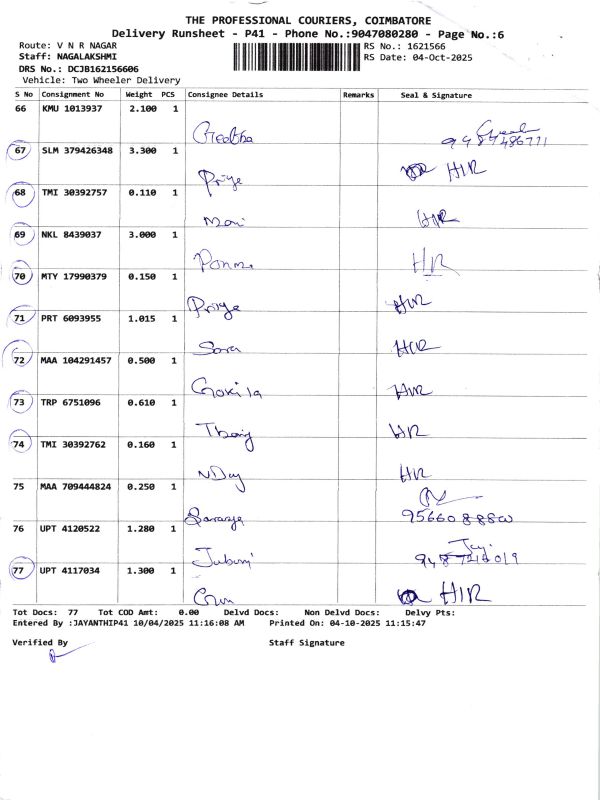 THE PROFESSIONAL COURIERS, COIMBATORE
Delivery Runsheet - P41 - Phone No.:9047080280 - Page No.:6
Route: V N R NAGAR
RS No.: 1621566
Staff: NAGALAKSHMI
RS Date: 04-Oct-2025
DRS No.: DCJB162156606
Vehicle: Two Wheeler Delivery
S No Consignment No Weight PCS Consignee Details Remarks Seal & Signature
66 KMU 1013937 2.100 1
Geetha 9487486771
67 SLM 379426348 3.300 1
Priya H/R
68 TMI 30392757 0.110 1
Mani H/R
69 NKL 8439037 3.000 1
H/R
70 MTY 17990379 0.150 1
Priya H/R
71 PRT 6093955 1.015 1
H/R
72 MAA 104291457 0.500 1
Gokila H/R
73 TRP 6751096 0.610 1
H/R
74 TMI 30392762 0.160 1
H/R
75 MAA 709444824 0.250 1
Saranya
76 UPT 4120522 1.280 1
77 UPT 4117034 1.300 1
H/R
Tot Docs: 77 Tot COD Amt: 0.00 Delvd Docs: Non Delvd Docs: Delvy Pts:
Entered By :JAYANTHIP41 10/04/2025 11:16:08 AM Printed On: 04-10-2025 11:15:47
Verified By Staff Signature